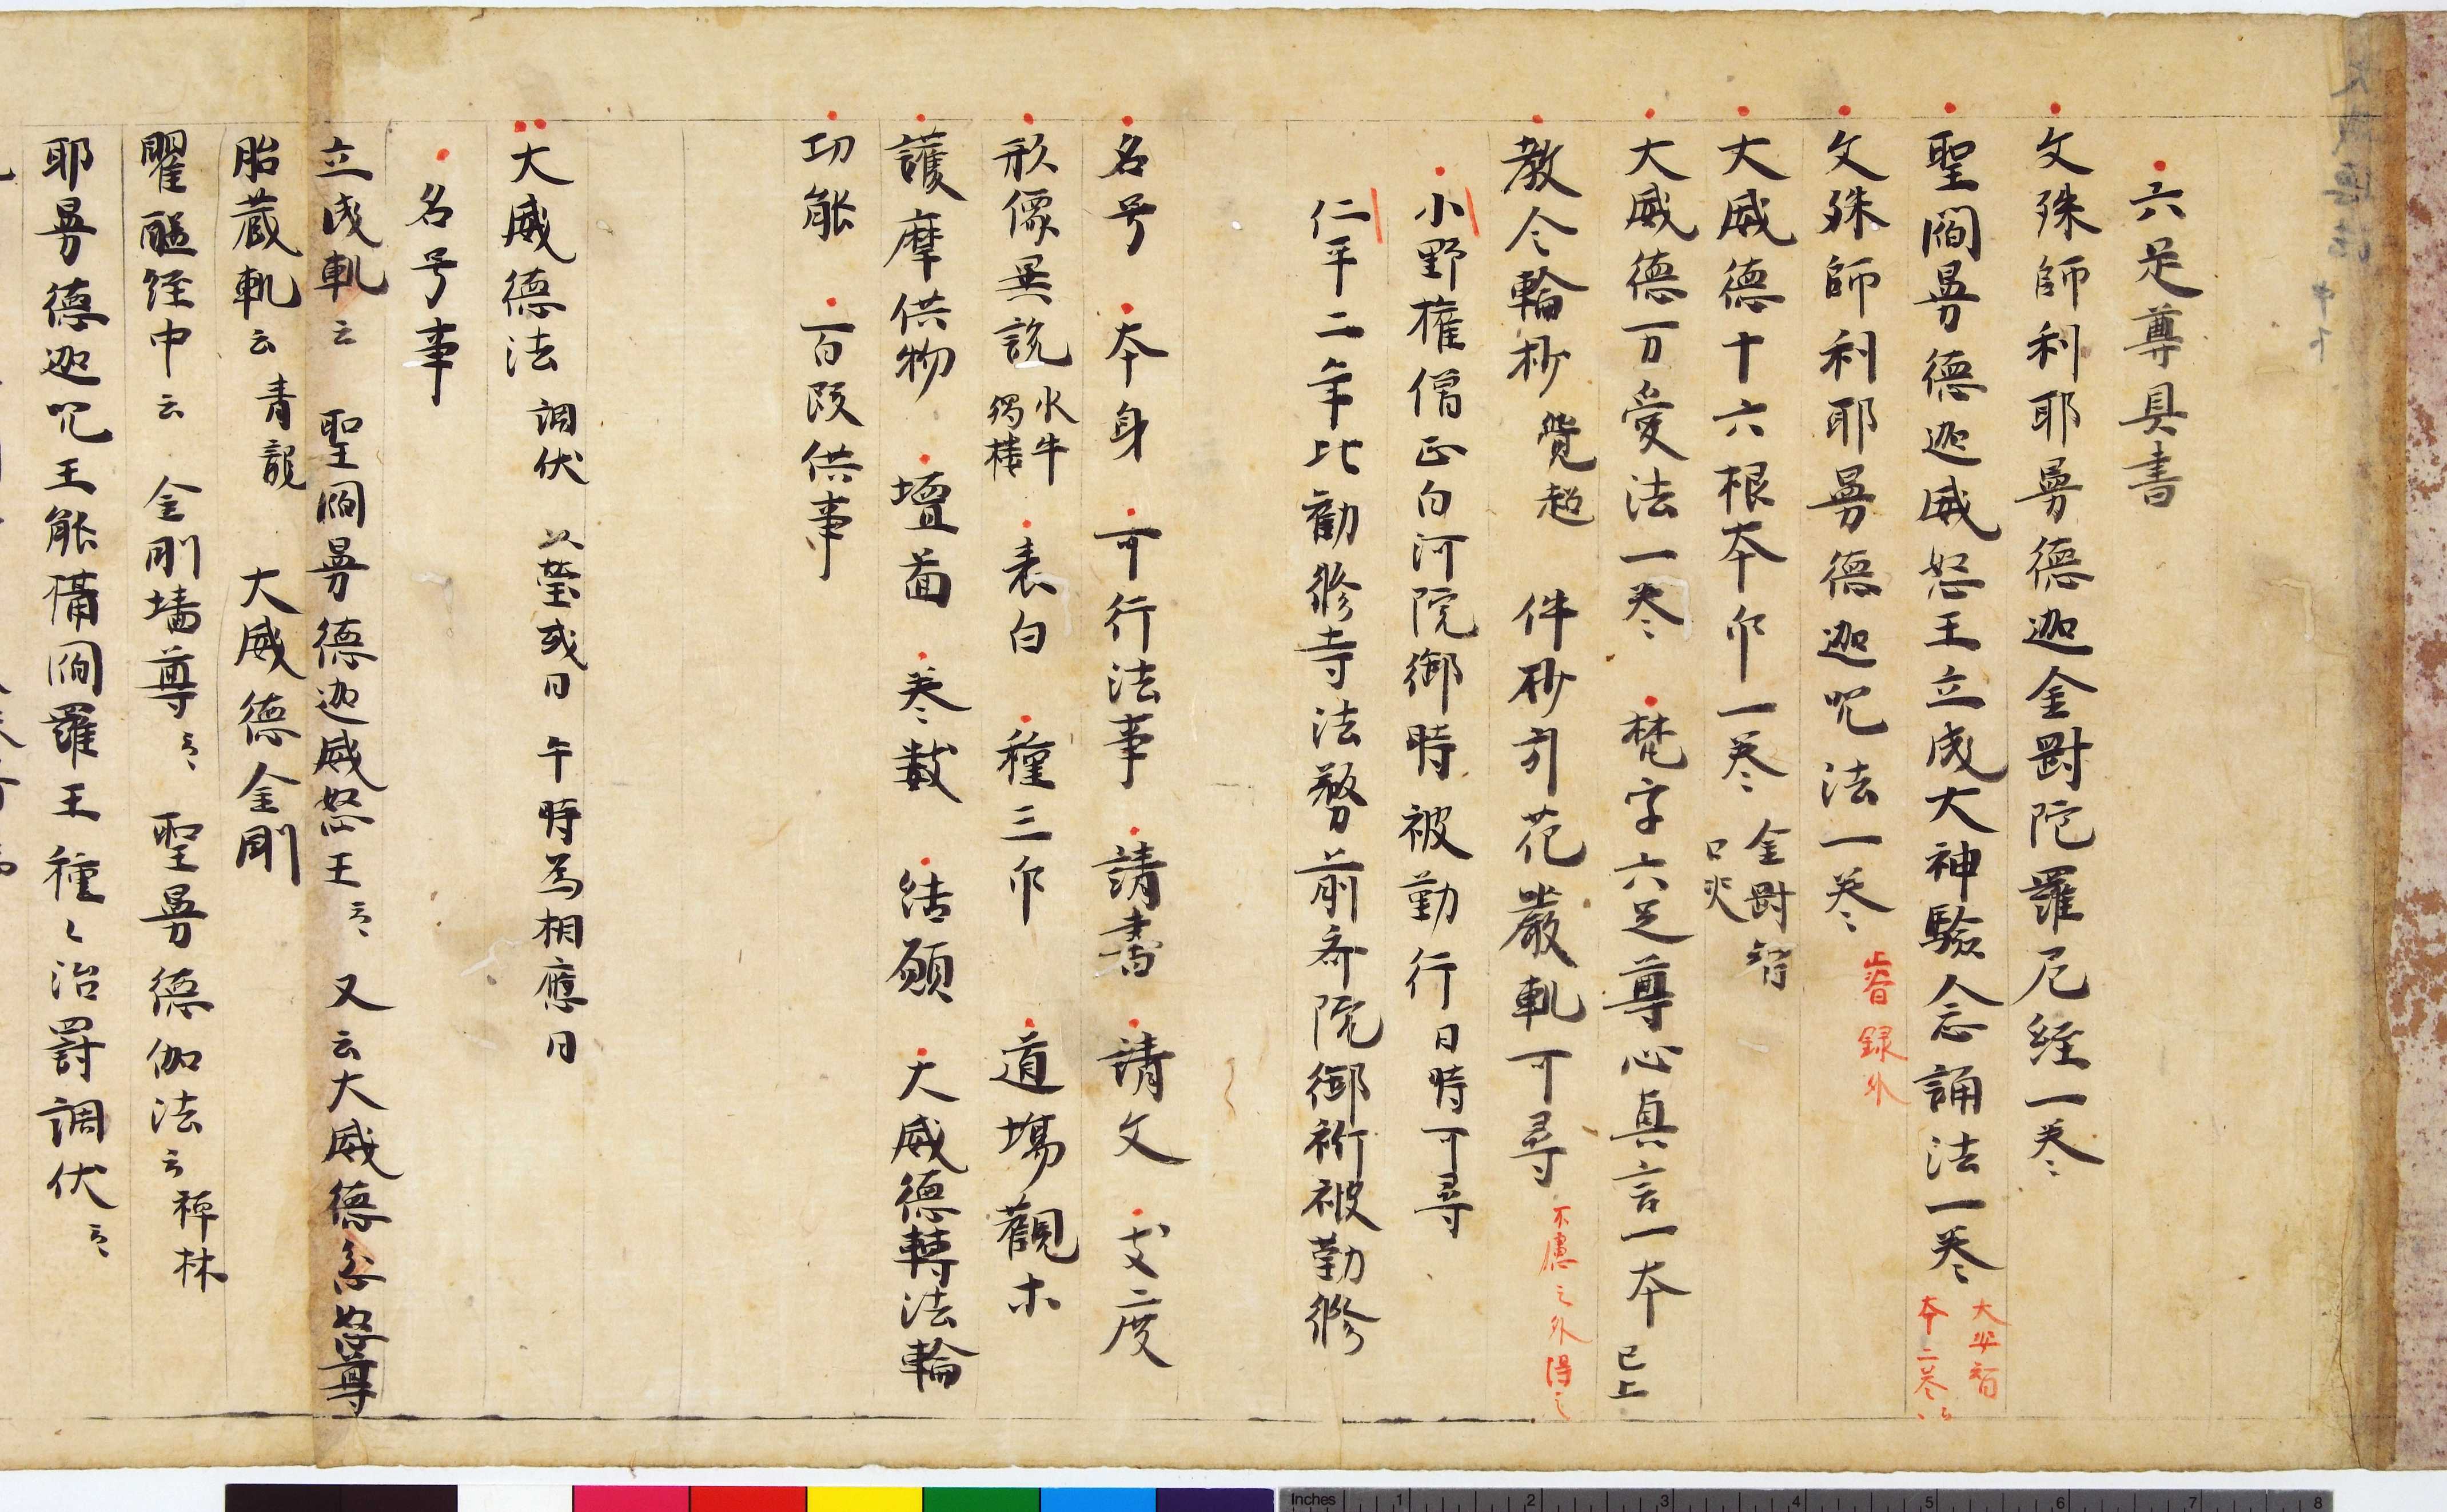 六足尊具書
文殊師利耶曼德迦金罸陀羅尼経一巻
聖閻曼德迦威怒王立成大神驗念誦法一巻
文殊師利耶曼德迦咒法一巻 錄外
大威德十六根本印一巻 金罸智
大威德万愛法一巻 梵字六足尊心真言一本 已上
教令輪抄 覚超 件抄引花嚴軌可尋 不慮之外得之
小野権僧正白河院御時被勤行日時可尋
仁平二年比勸修寺法務前斎院御祈被勤修
名号 本身 可行法事 請書 請文 支度
形像異説 水牛 表白 種三印 道場觀等
護摩供物 壇面 巻数 結願 大威德轉法輪
功能 百段供事
大威德法 調伏 以螢或日 午時為相應日
名号事
立成軌云 聖閻曼德迦威怒王云々 又云大威德忿怒尊
胎蔵軌云 青龍 大威德金剛
瞿醯経中云 金剛墻尊云々 聖曼德伽法云 禅林
耶曼德迦咒王能備閻羅王種々治罸調伏云々